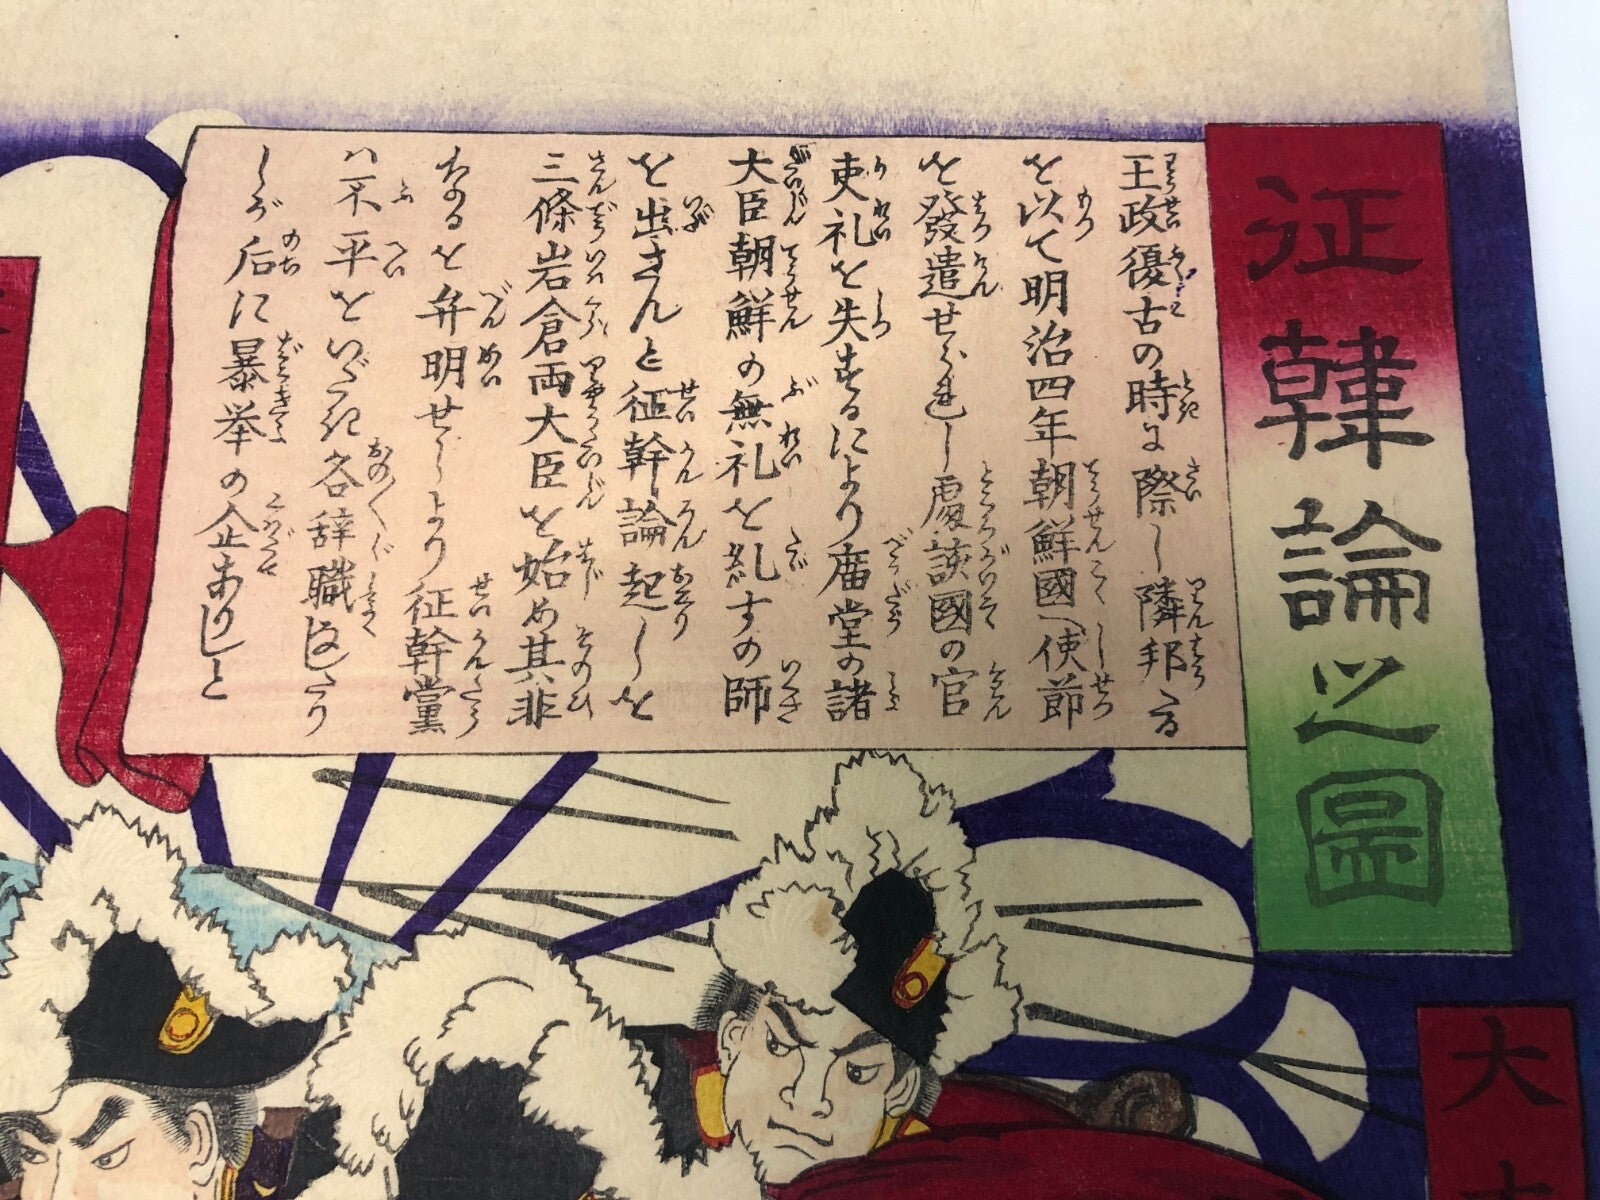 征韓論之圖
王政復古の時に際し隣邦たる
を以て明治四年朝鮮國へ使節
を發遣せられし處該國の官
吏礼を失するにより廟堂の諸
大臣朝鮮の無礼を糺すの師
を出さんと征幹論起しを
三條岩倉両大臣を始め其非
なるを弁明せしより征幹黨
ハ不平をいだき各辞職なしたり
しが后に暴挙の企ありしと
大